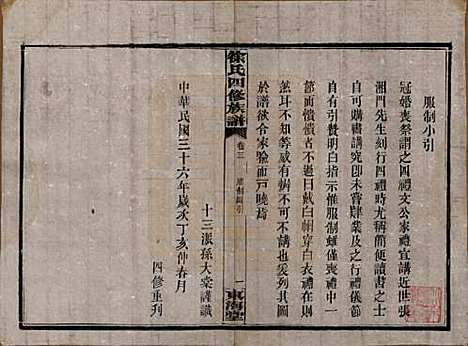 服制小引
冠婚喪祭謂之四禮文公家禮宣講近世張
湘門先生刻行四禮時尤稱簡便讀書之士
自可購禮講究即未嘗肄業及之行禮儀節
自有引贊明白指示惟服制雖僅喪禮中一
節而憒憒者不可日戴白帽穿白衣禮在則
然耳不知等威有辨不可不講也爰列其圖
於譜欲令家喻而戶曉焉
十三派孫大 謹識
中華民國三十六年歲次丁亥仲春月
四修重刊
徐氏四修族譜
卷三
服制小引
一
東海堂